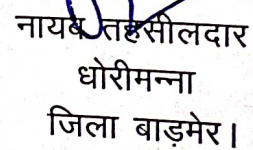 नायब तहसीलदार
धोरीमन्ना
जिला बाड़मेर।